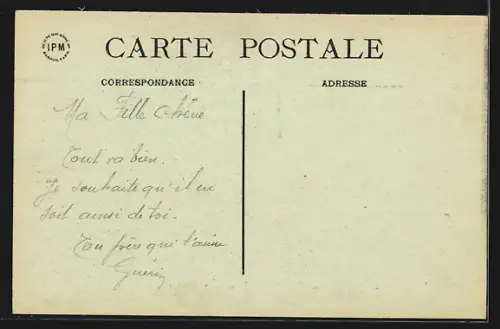 IPM
CARTE POSTALE
CORRESPONDANCE
ADRESSE
Ma Fille chérie
Tout va bien.
Je souhaite qu'il en
soit ainsi de toi.
Ton frère qui t'aime
Guérin